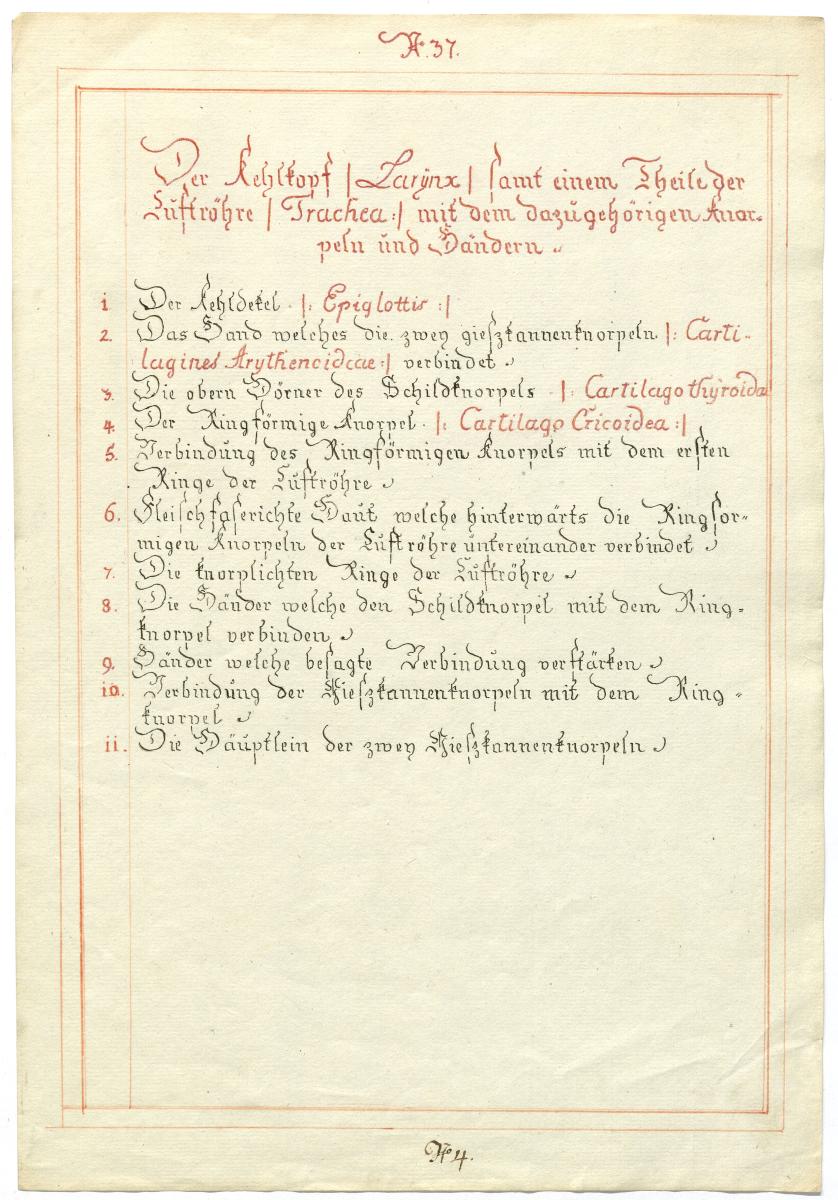 N° 37.
Der Kehlkopf |Larÿnx| samt einem Theile der
Luftröhre |Trachea:| mit dem dazugehörigen Knor-
peln und Bändern.
1 Der Kehldekel. |: Epiglottis :|
2. Das Band welches die zwey gieszkannenknorpeln |: Carti-
lagines Arythenoideae:| verbindet.
3. Die obern Hörner des Schildknorpels |: Cartilago thÿroidea
4. Der Ringförmige Knorpel. |: Cartilago Cricoidea :|
5. Verbindung des Ringförmigen Knorpels mit dem ersten
Ringe der Luftröhre.
6. Fleischfaserichte Haut welche hinterwärts die Ringför-
migen Knorpeln der Luftröhre untereinander verbindet.
7. Die knorplichten Ringe der Luftröhre.
8. Die Bänder welche den Schildknorpel mit dem Ring-
knorpel verbinden.
9. Bänder welche besagte Verbindung verstärken.
10. Verbindung der Gieszkannenknorpeln mit dem Ring-
knorpel.
11. Die Häuptlein der zwey Gieszkannenknorpeln.
N° 4.